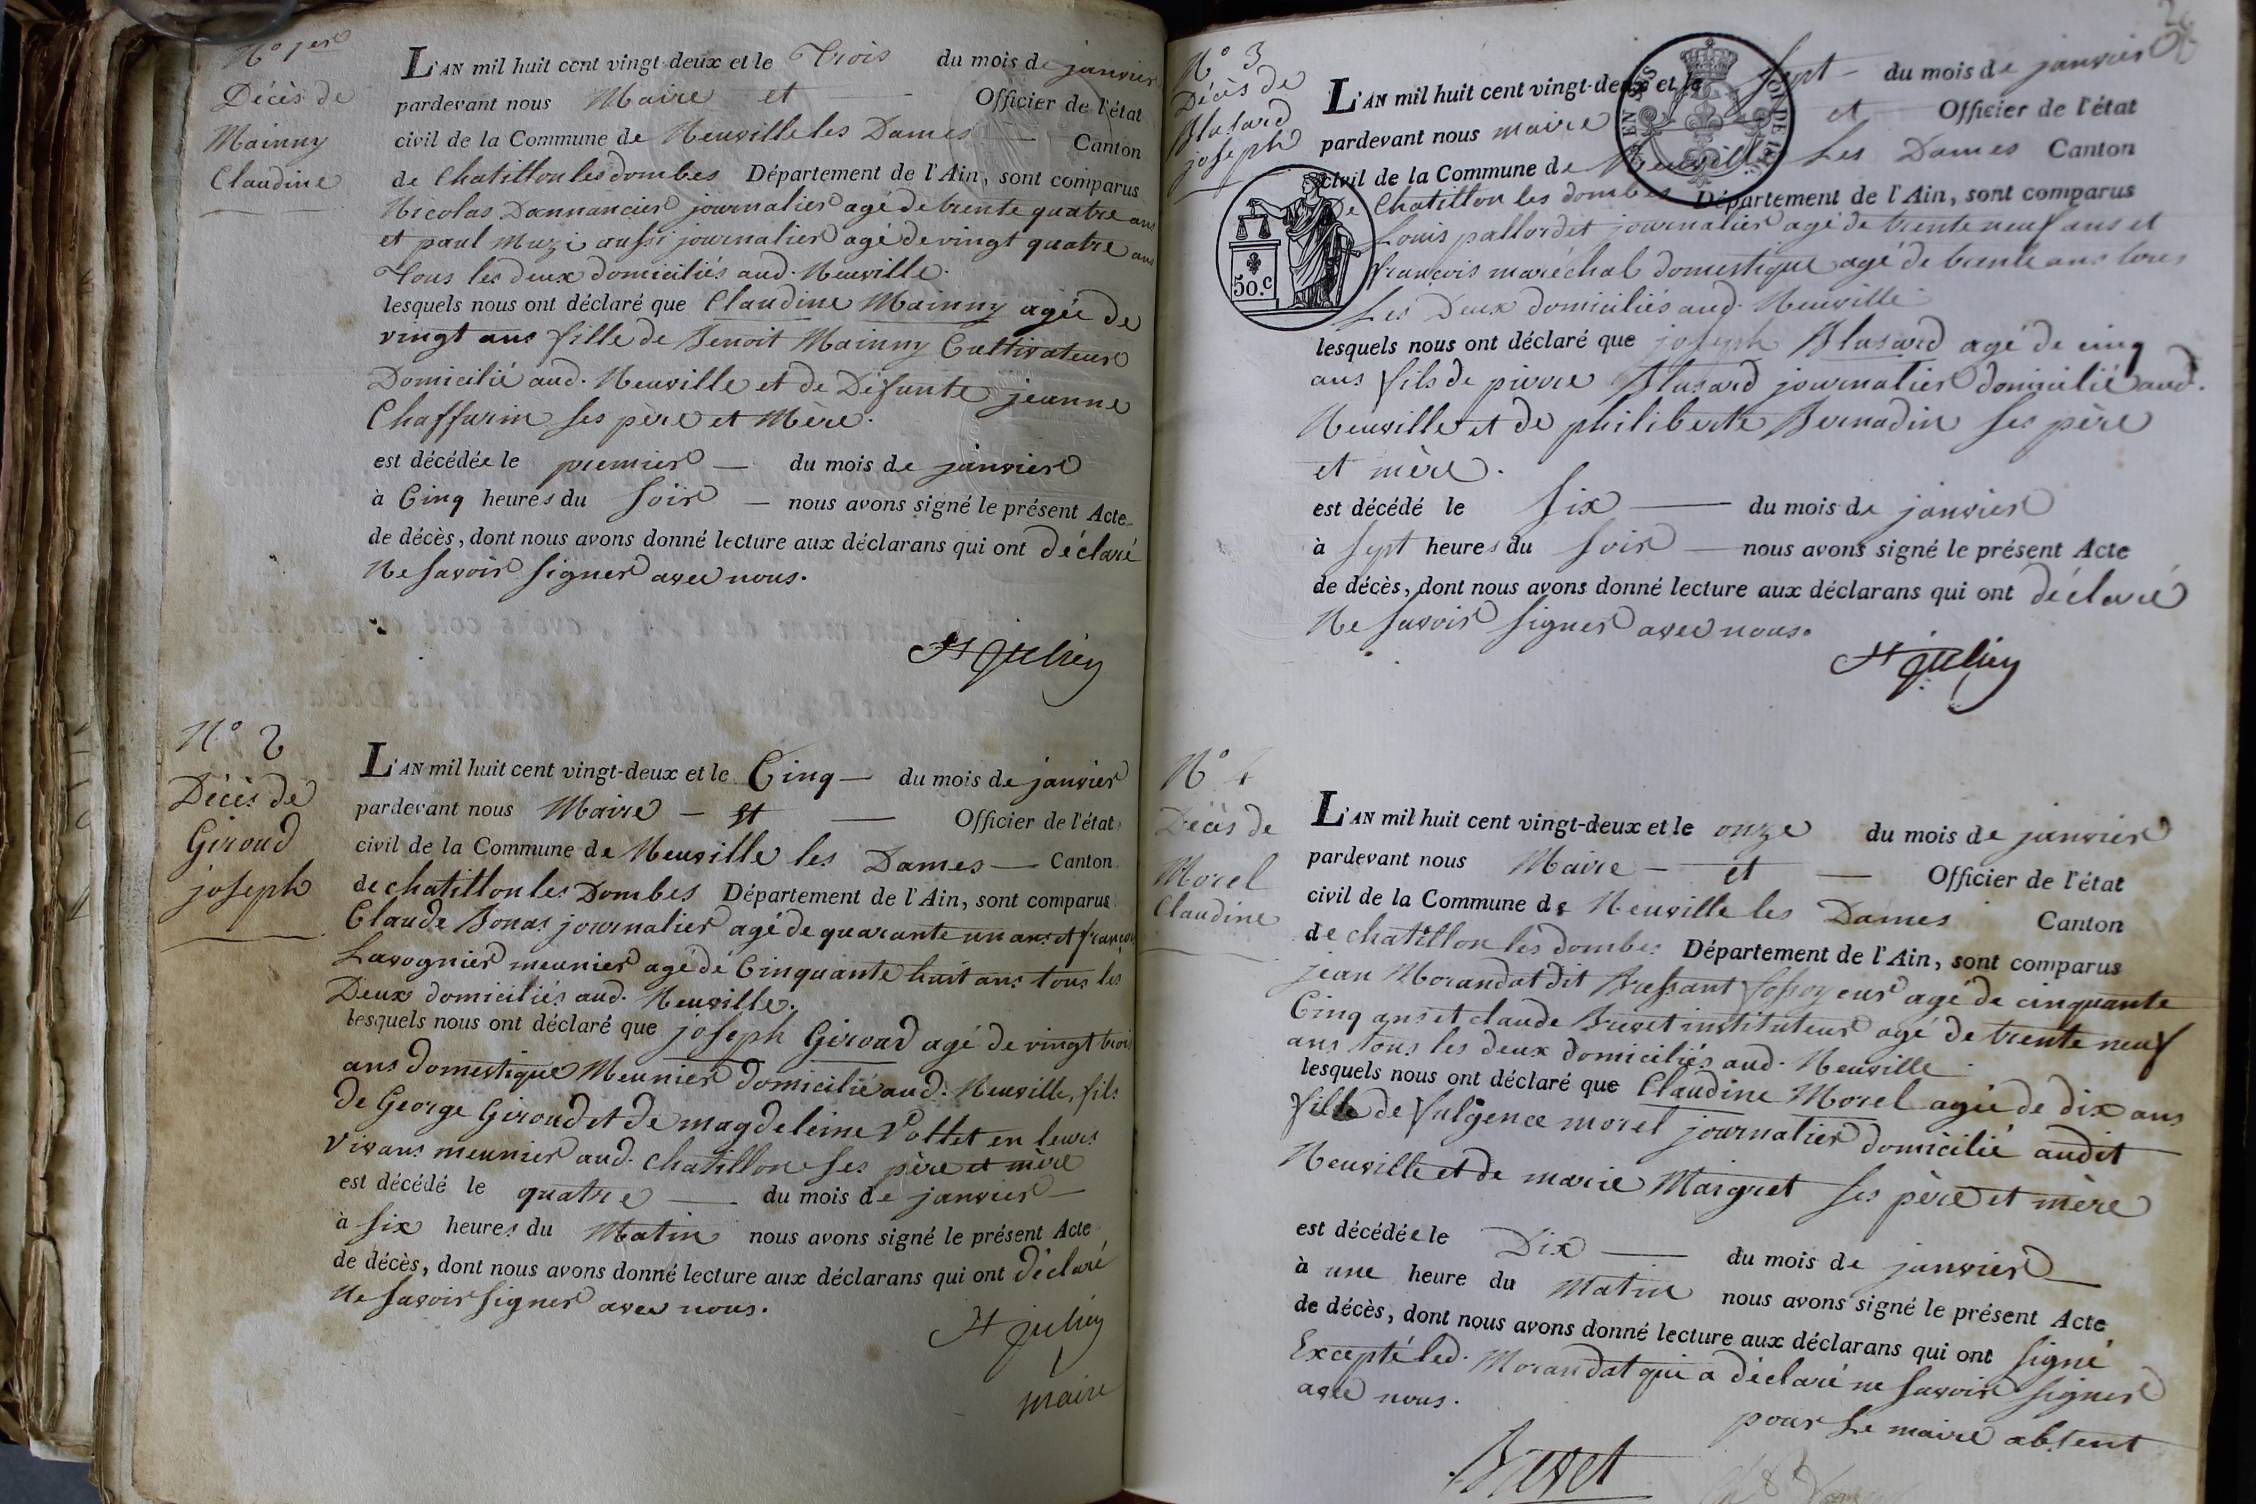 N° 1er
Décès de
Mainny
Claudine
L'AN mil huit cent vingt-deux et le Trois du mois de janvier
pardevant nous Maire et Officier de l'état
civil de la Commune de Neuville les Dames Canton
de Chatillon les dombes Département de l'Ain, sont comparus
Nicolas Dannancier journalier agé de trente quatre ans
et paul Muzi aussi journalier agé de vingt quatre ans
Tous les deux domiciliés aud. Neuville.
lesquels nous ont déclaré que Claudine Mainny agée de
vingt ans fille de Benoit Mainny Cultivateur
Domicilié aud. Neuville et de Défunte jeanne
Chaffurin ses père et Mère.
est décédée le premier du mois de janvier
à Cinq heures du soir nous avons signé le présent Acte
de décès, dont nous avons donné lecture aux déclarans qui ont déclaré
Ne savoir signer avec nous.
St julien
N° 2
Décès de
Giroud
joseph
L'AN mil huit cent vingt-deux et le Cinq du mois de janvier
pardevant nous Maire et Officier de l'état
civil de la Commune de Neuville les Dames Canton
de chatillon les Dombes Département de l'Ain, sont comparus
Claude Bonas journalier agé de quarante un ans et françois
Lavognier meunier agé de Cinquante huit ans tous les
Deux domiciliés aud. Neuville.
lesquels nous ont déclaré que joseph Giroud agé de vingt trois
ans domestique Meunier domicilié aud. Neuville, fils
de George Giroud et de magdeleine Pollet en leurs
Vivans meunier aud. chatillon ses père et mère
est décédé le quatre du mois de janvier
à six heures du Matin nous avons signé le présent Acte
de décès, dont nous avons donné lecture aux déclarans qui ont déclaré
Ne savoir signer avec nous.
St julien
maire
N° 3
Décès de
Blusard
joseph
L'AN mil huit cent vingt-deux et le sept du mois de janvier
pardevant nous maire et Officier de l'état
civil de la Commune de Neuville Les Dames Canton
De Chatillon les dombes Département de l'Ain, sont comparus
50.c
Louis pallordet journalier agé de trente neuf ans et
françois maréchal domestique agé de trente ans tous
Les Deux domiciliés aud. Neuville
lesquels nous ont déclaré que joseph Blusard agé de cinq
ans fils de pierre Blusard journalier domicilié aud.
Neuville et de philiberte Bernadin ses père
et mère.
est décédé le six du mois de janvier
à sept heures du soir nous avons signé le présent Acte
de décès, dont nous avons donné lecture aux déclarans qui ont déclaré
Ne savoir signer avec nous.
St julien
N° 4
Décès de
Morel
Claudine
L'AN mil huit cent vingt-deux et le onze du mois de janvier
pardevant nous Maire et Officier de l'état
civil de la Commune de Neuville les Dames Canton
de chatillon les dombes Département de l'Ain, sont comparus
jean Morandat dit Bressant fossoyeur agé de cinquante
Cinq ans et claude Brevet instituteur agé de trente neuf
ans tous les deux domiciliés aud. Neuville.
lesquels nous ont déclaré que Claudine Morel agée de dix ans
fille de fulgence morel journalier domicilié audit
Neuville et de marie Maigret ses père et mère
est décédée le Dix du mois de janvier
à une heure du Matin nous avons signé le présent Acte
de décès, dont nous avons donné lecture aux déclarans qui ont signé
Excepté led. Morandat qui a déclaré ne savoir signer
avec nous.
pour Le maire absent
Brevet